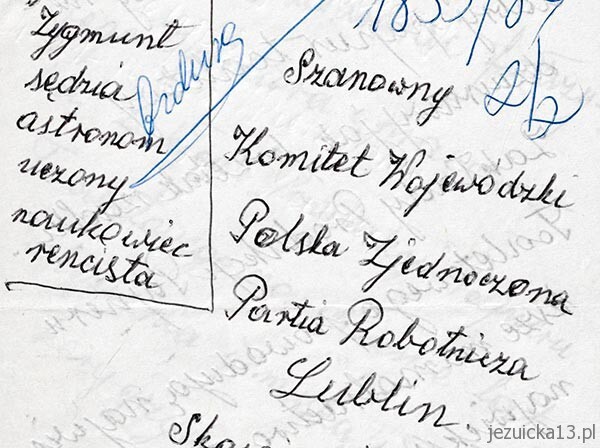 Zygmunt
sędzia
astronom
uczony
naukowiec
rencista
Szanowny
Komitet Wojewódzki
Polska Zjednoczona
Partia Robotnicza
Lublin.
jezuicka13.pl